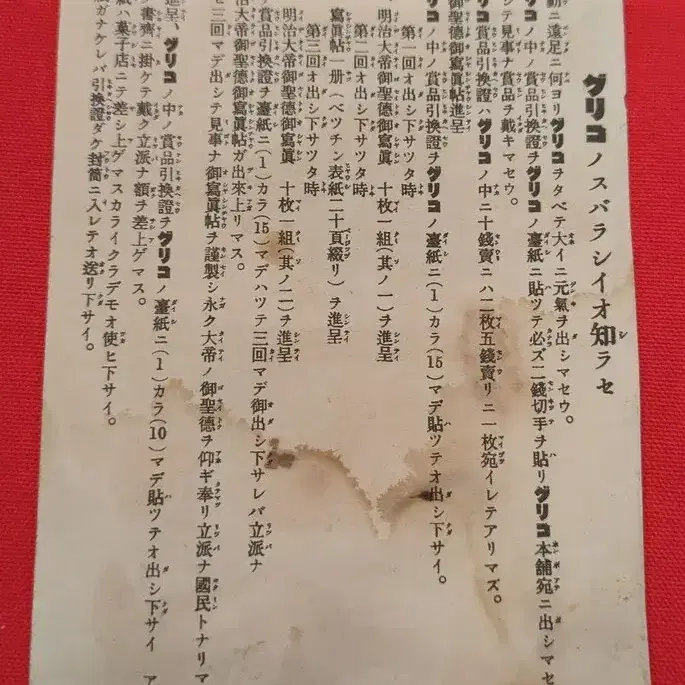 グリコノスバラシイオ知ラセ
動ニ遠足ニ何ヨリグリコヲタベテ大イニ元氣ヲ出シマセウ。
コノ中ノ賞品引換證ヲグリコノ臺紙ニ貼ツテ必ズ二錢切手ヲ貼リグリコ本舗宛ニ出シマセ
シテ見事ナ賞品ヲ戴キマセウ。
コ賞品引換證ハグリコノ中ニ十錢賣ニハ二枚五錢賣リニ一枚宛イレテアリマズ。
御聖德御寫眞帖進呈
リコノ中ノ賞品引換證ヲグリコノ臺紙ニ(1)カラ(15)マデ貼ツテオ出シ下サイ。
第一回オ出シ下サツタ時
明治大帝御聖德御寫眞 十枚一組(其ノ一)ヲ進呈
第二回オ出シ下サツタ時
寫眞帖一册(ベツチン表紙二十頁綴リ)ヲ進呈
第三回オ出シ下サツタ時
明治大帝御聖德御寫眞 十枚一組(其ノ二)ヲ進呈
賞品引換證ヲ臺紙ニ(1)カラ(15)マデハツテ三回マデ御出シ下サレバ立派ナ
大帝御聖德御寫眞帖ガ出來上リマス。
セ三回マデ出シテ見事ナ御寫眞帖ヲ謹製シ永ク大帝ノ御聖德ヲ仰ギ奉リ立派ナ國民トナリマ
進呈、グリコノ中ノ賞品引換證ヲグリコノ臺紙ニ(1)カラ(10)マデ貼ツテオ出シ下サイ ア
書齊ニ掛ケテ戴ク立派ナ額ヲ差上ゲマス。
紙ハ菓子店ニテ差シ上ゲマスカライクラデモオ使ヒ下サイ。
紙ガナケレバ引換證ダケ封筒ニ入レテオ送リ下サイ。